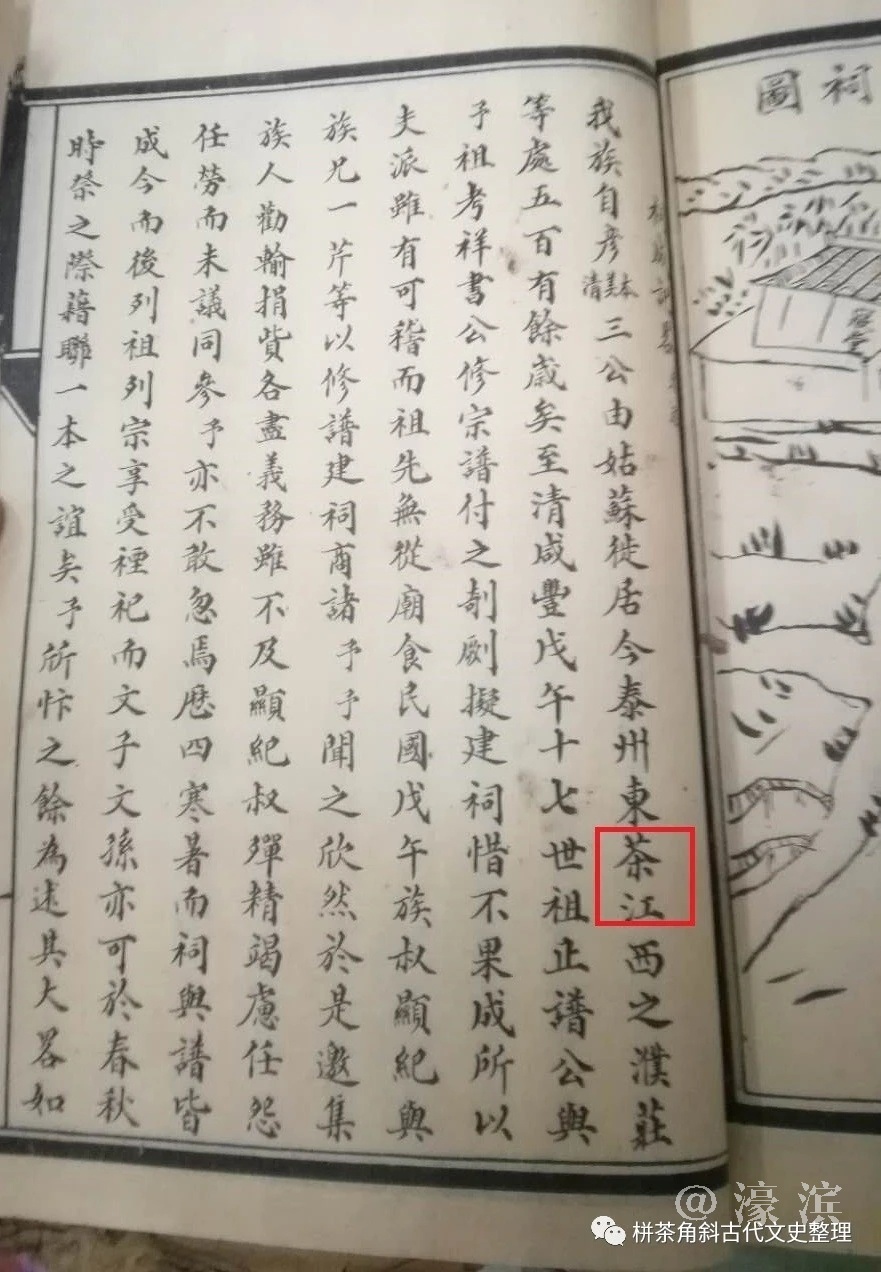 祠圖
寢堂
我族自彥本美清三公由姑蘇徙居今泰州東茶江西之濮莊
等處五百有餘歲矣至清咸豐戊午十七世祖正譜公與
予祖考祥書公修宗譜付之剞劂擬建祠惜不果成所以
夫派雖有可稽而祖先無從廟食民國戊午族叔顯紀與
族兄一芹等以修譜建祠商諸予予聞之欣然於是邀集
族人勸輸捐貲各盡義務雖不及顯紀叔殫精竭慮任怨
任勞而未議同參予亦不敢忽焉歷四寒暑而祠與譜皆
成今而後列祖列宗享受禋祀而文子文孫亦可於春秋
時祭之際藉聯一本之誼矣予欣忭之餘為述其大畧如
@濠滨
栟茶角斜古代文史整理